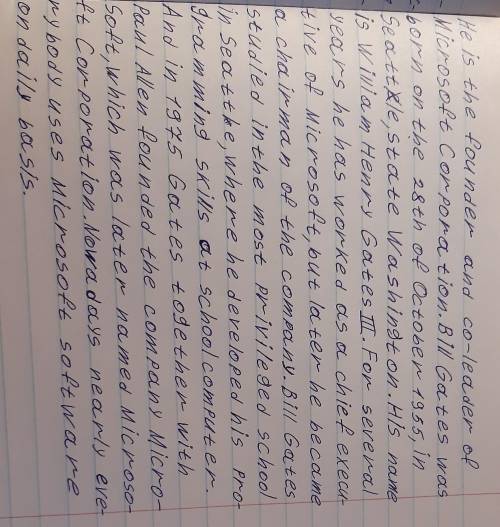 He is the founder and co-leader of
Microsoft Corporation. Bill Gates was
born on the 28th of October 1955, in
Seattle, state Washington. His name
is William Henry Gates III. For several
years he has worked as a chief execu-
tive of Microsoft, but later he became
a chairman of the company. Bill Gates
studied in the most privileged school
in Seattle, where he developed his pro-
gramming skills at school computer.
And in 1975 Gates together with
Paul Allen founded the company Micro-
Soft, which was later named Microso-
ft Corporation. Nowadays nearly eve-
rybody uses Microsoft software
on daily basis.